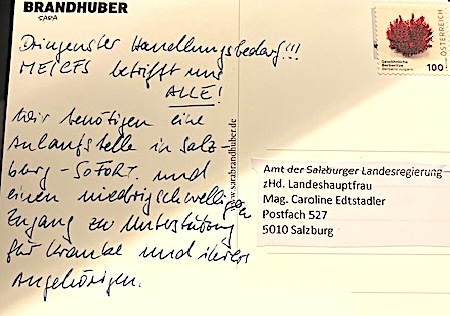 BRANDHUBER
SARA
Dringenster Handlungsbedarf!!!
ME/CFS betrifft uns
ALLE!
Wir benötigen eine
Anlaufstelle in Salz-
burg - SOFORT. und
einen niedrigschwelligen
Zugang zu Unterstützung
für Kranke und ihre
Angehörigen.
www.sarabrandhuber.de
ÖSTERREICH
Gewöhnliche
Berberitze
Berberis vulgaris
100
Amt der Salzburger Landesregierung
zHd. Landeshauptfrau
Mag. Caroline Edtstadler
Postfach 527
5010 Salzburg